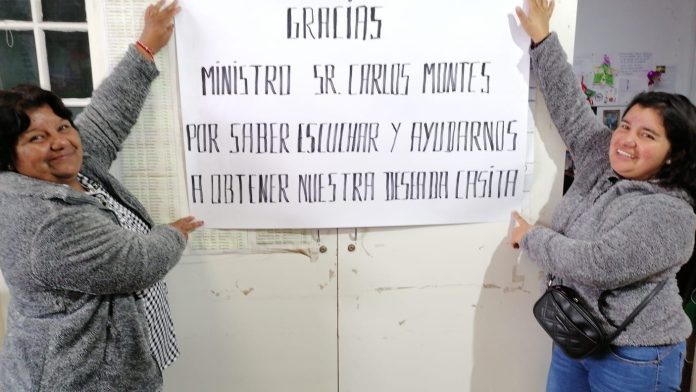 GRACIAS
MINISTRO SR. CARLOS MONTES
POR SABER ESCUCHAR Y AYUDARNOS
A OBTENER NUESTRA DESEADA CASITA